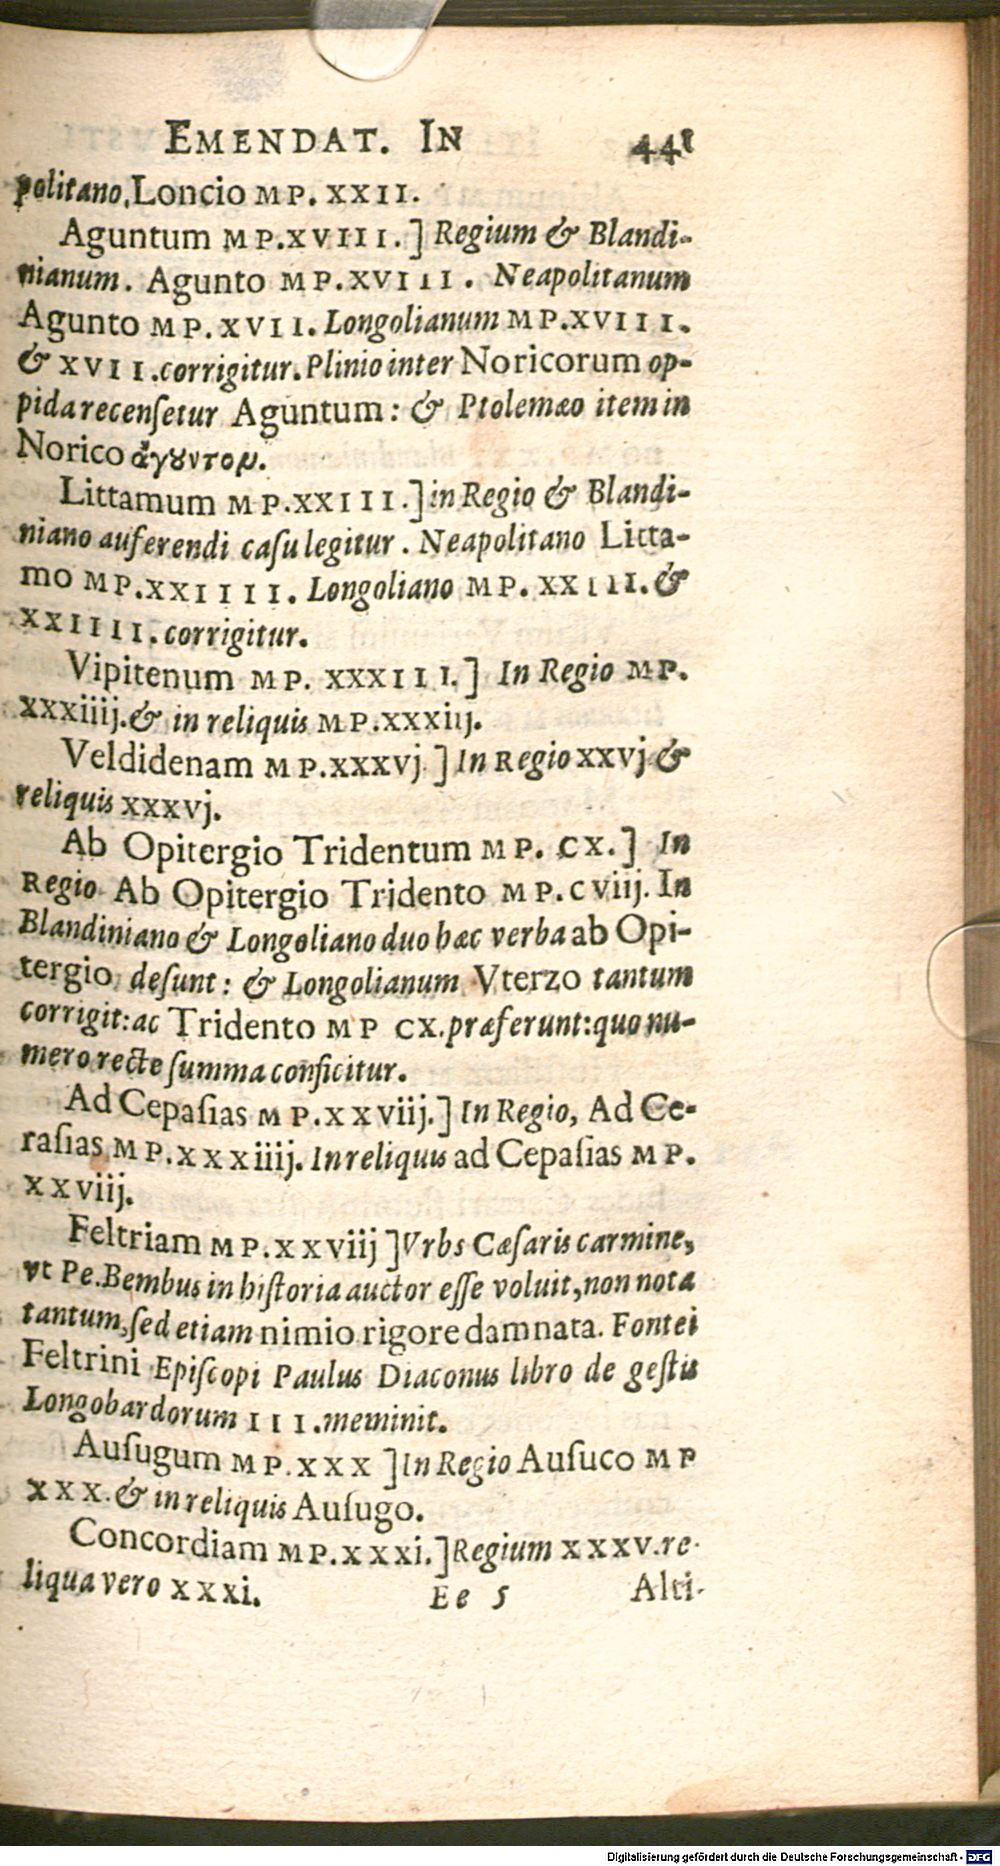 EMENDAT. IN 441
politano, Loncio MP. XXII.
Aguntum MP. XVIII.] Regium & Blandi-
nianum. Agunto MP. XVIII. Neapolitanum
Agunto MP. XVII. Longolianum MP. XVIII.
& XVII. corrigitur. Plinio inter Noricorum op-
pida recenſetur Aguntum: & Ptolemæo item in
Norico ἄγουντον.
Littamum MP. XXIII.] in Regio & Blandi-
niano auferendi caſu legitur. Neapolitano Litta-
mo MP. XXIIII. Longoliano MP. XXIII. &
XXIIII. corrigitur.
Vipitenum MP. XXXIII.] In Regio MP.
XXXiiij. & in reliquis MP. XXXiij.
Veldidenam MP. XXXVj.] In Regio XXVj &
reliquis XXXVj.
Ab Opitergio Tridentum MP. CX.] In
Regio Ab Opitergio Tridento MP. CViij. In
Blandiniano & Longoliano duo hæc verba ab Opi-
tergio deſunt: & Longolianum Vterzo tantum
corrigit: ac Tridento MP CX. præferunt: quo nu-
mero recte ſumma conficitur.
Ad Cepaſias MP. XXViij.] In Regio, Ad Ce-
raſias MP. XXXiiij. In reliquis ad Cepaſias MP.
XXViij.
Feltriam MP. XXViij] Vrbs Cæſaris carmine,
vt Pe. Bembus in hiſtoria auctor eſſe voluit, non nota
tantum, ſed etiam nimio rigore damnata. Fontei
Feltrini Epiſcopi Paulus Diaconus libro de geſtis
Longobardorum III. meminit.
Auſugum MP. XXX] In Regio Auſuco MP
XXX. & in reliquis Auſugo.
Concordiam MP. XXXi.] Regium XXXV. re-
liqua vero XXXi. Ee 5 Alti-
Digitalisierung gefördert durch die Deutsche Forschungsgemeinschaft - DFG